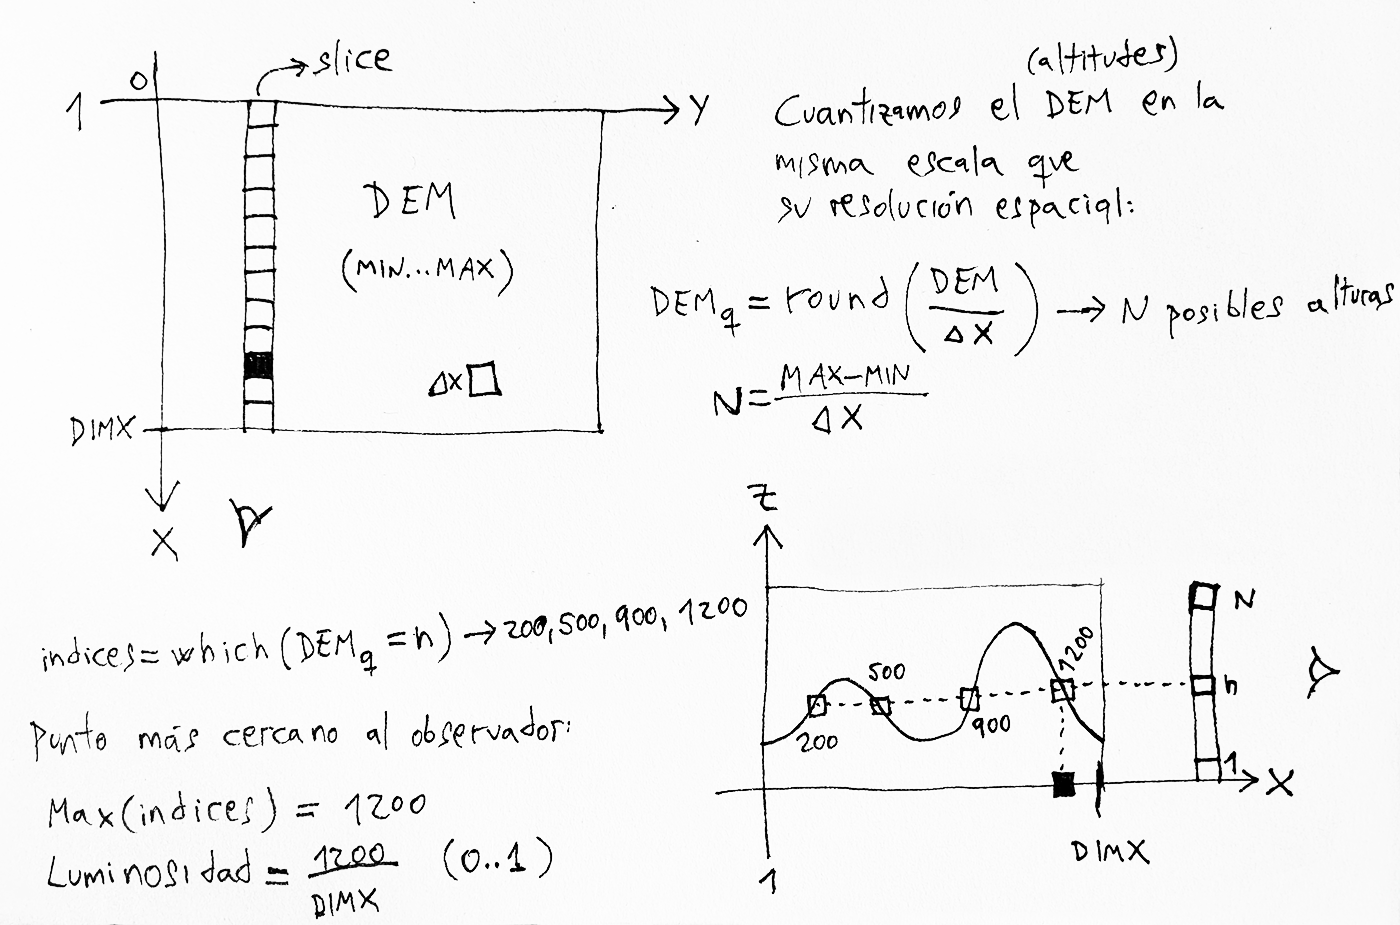 slice
0
1
Y
DEM
(MIN...MAX)
ΔX
DIMX
X
(altitudes)
Cuantizamos el DEM en la
misma escala que
su resolución espacial:
DEMq = round (DEM / ΔX) → N posibles alturas
N = MAX-MIN / ΔX
indices = which (DEMq = n) → 200, 500, 900, 1200
Punto más cercano al observador:
Max(indices) = 1200
Luminosidad = 1200 / DIMX (0..1)
Z
N
500
1200
n
200
900
1
X
DIMX
1